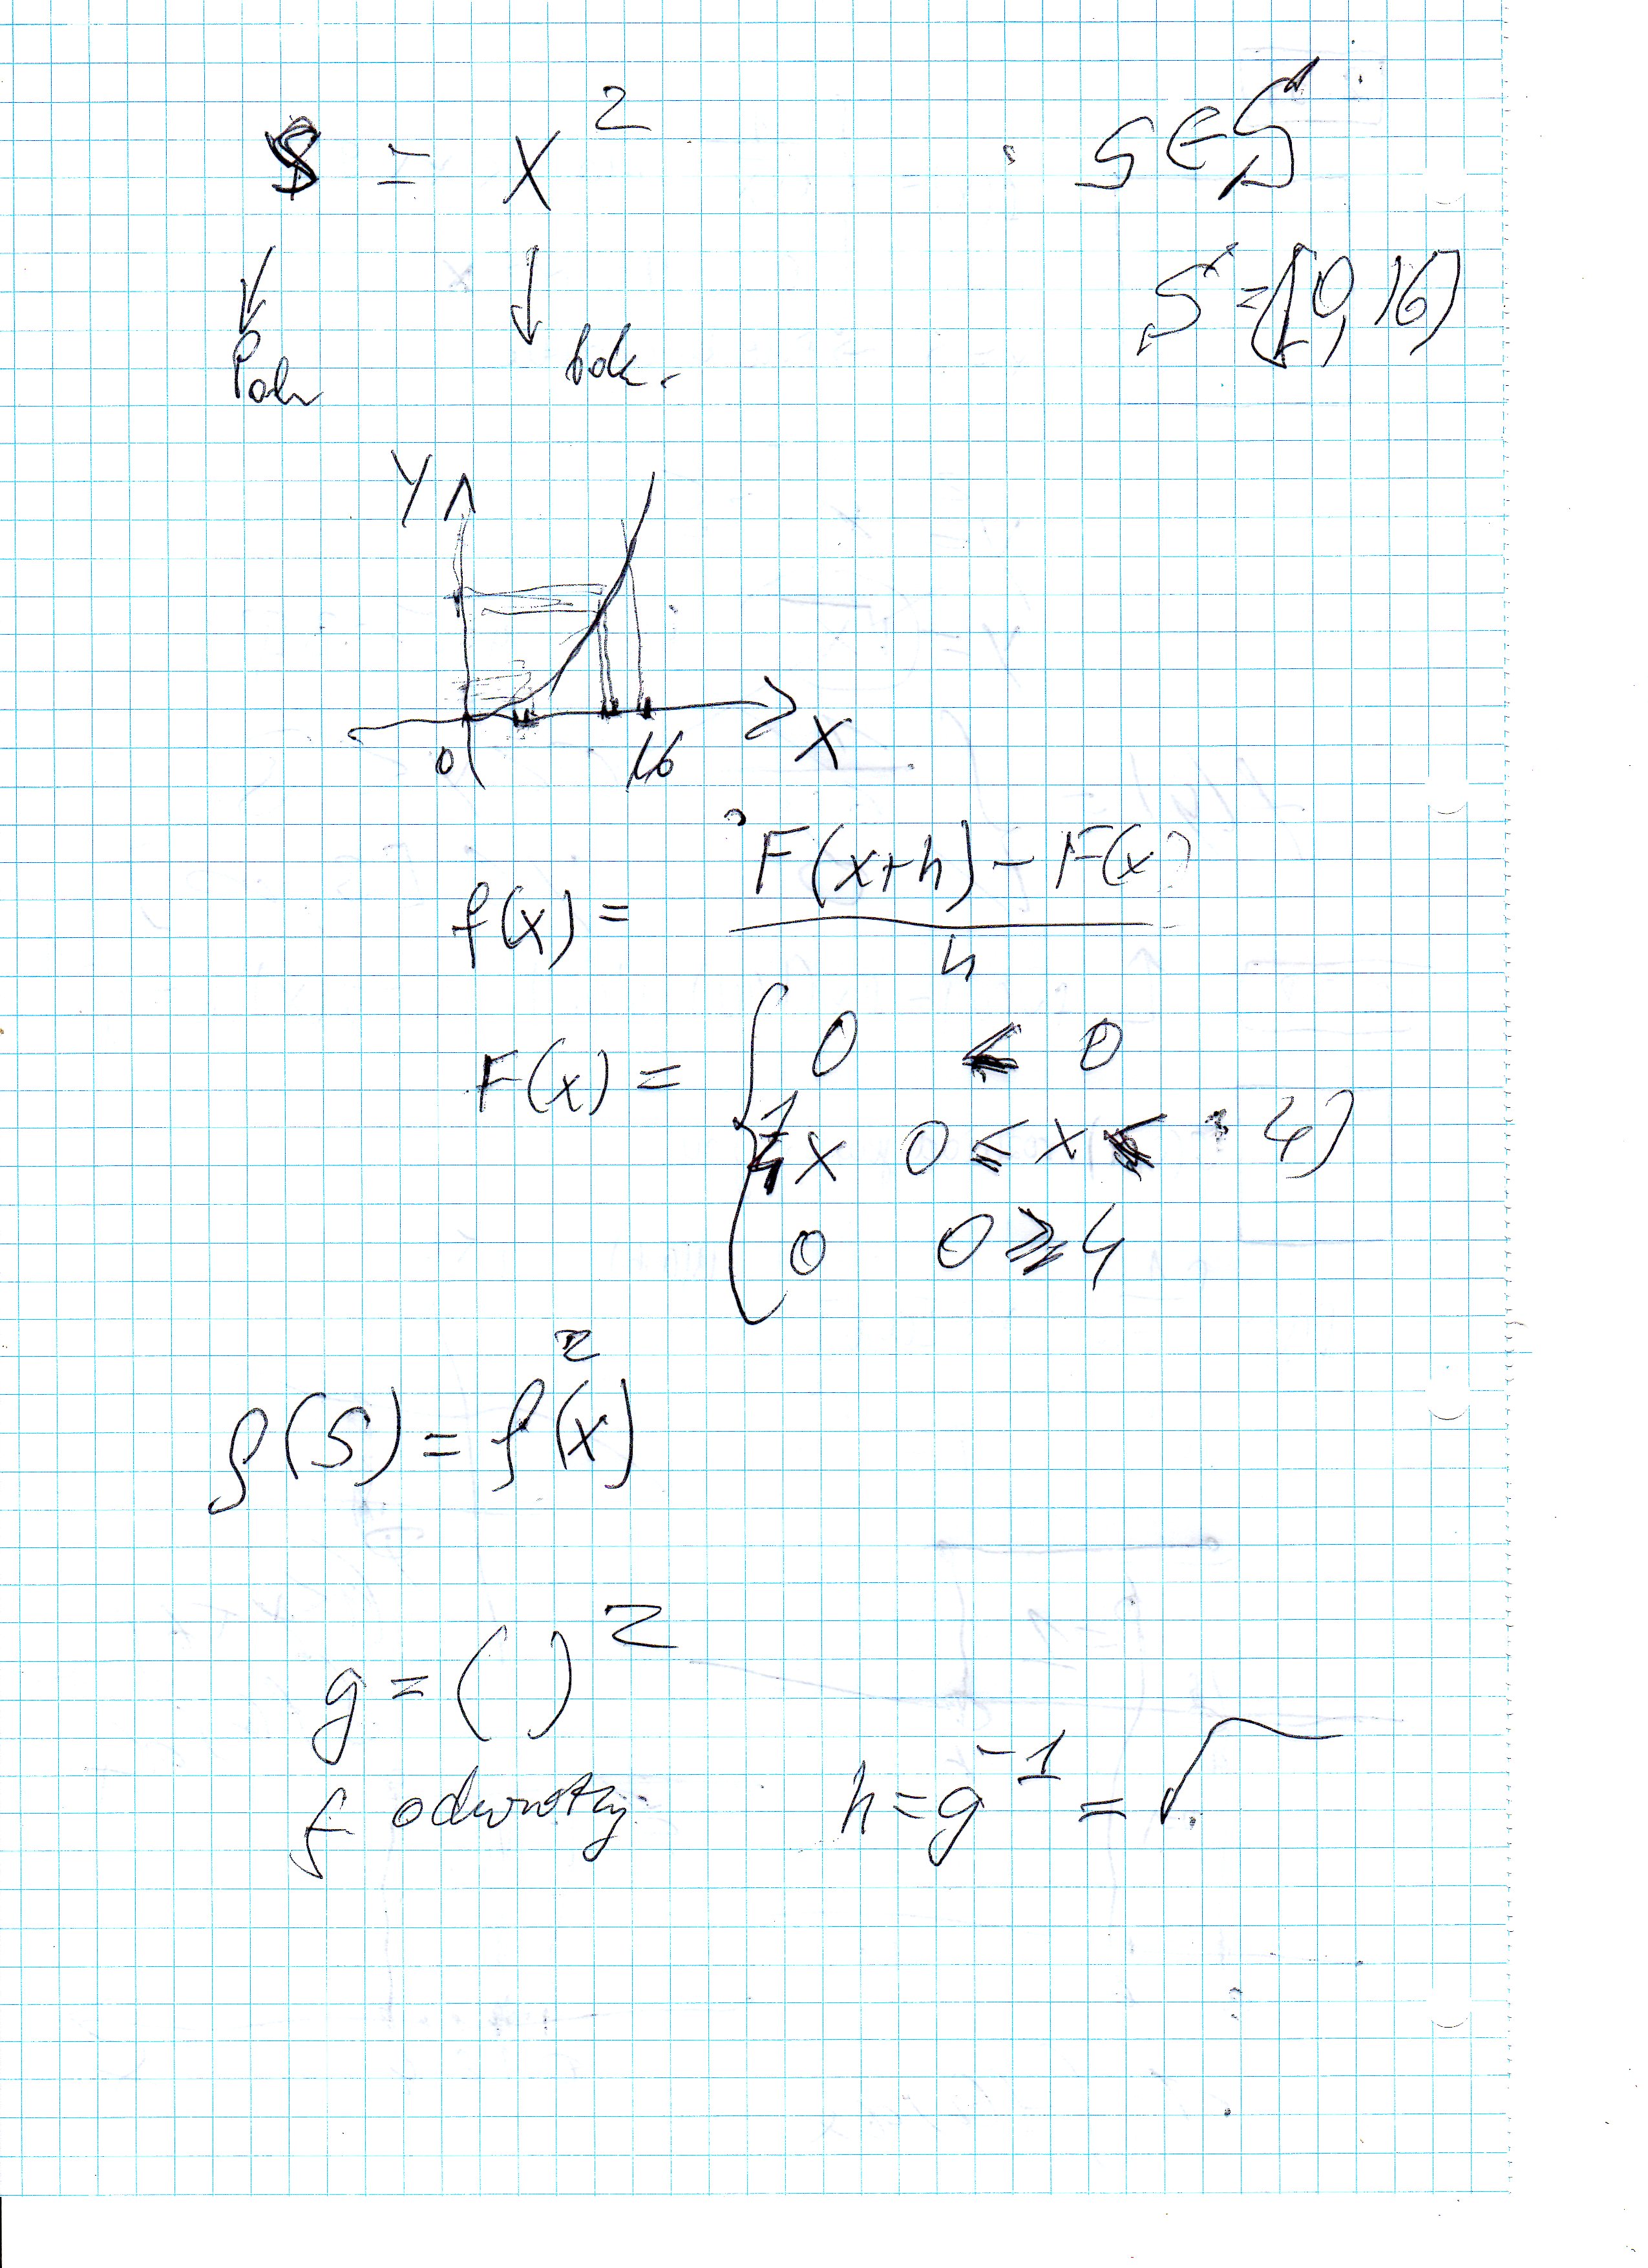 S = x² S ∈ S
S = [0, 16]
Pole bok.
Y
0 16 X
f(x) = F(x+h) - F(x) / h
F(x) = { 0 < 0
1/4 x 0 ≤ x ≤ 4)
0 0 ≥ 4
f(S) = f(x²)
g = ( )²
f odwrotny h = g⁻¹ = √